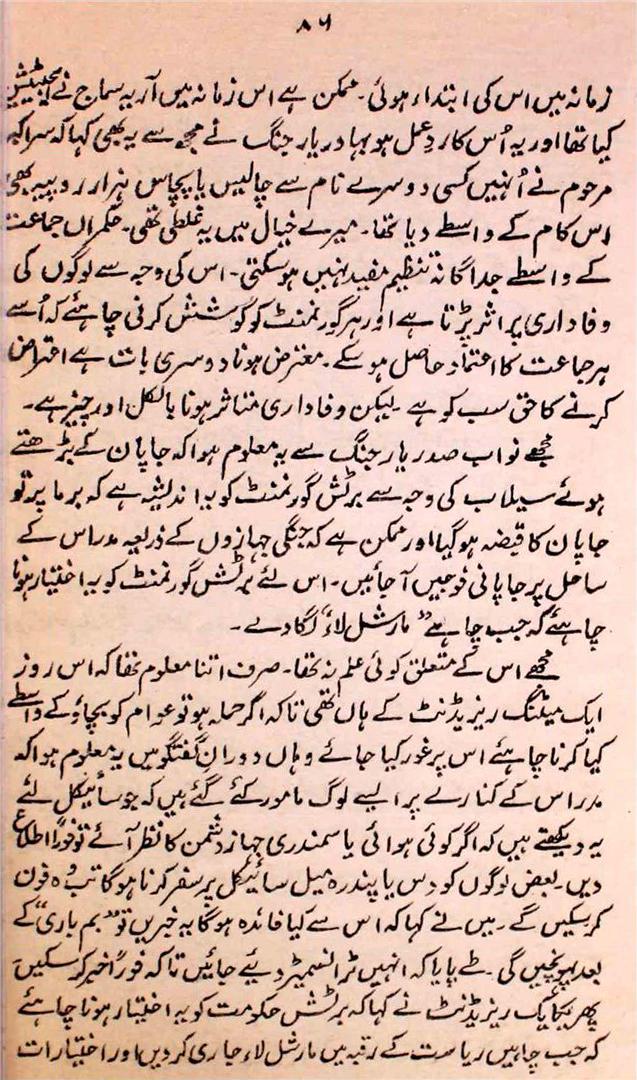 ۸۶
زمانہ میں اس کی ابتداء ہوئی۔ ممکن ہے اس زمانہ میں آریہ سماج نے ایجیٹیشن
کیا تھا اور یہ اُس کا ردِعمل ہو بہادر یار جنگ نے مجھ سے یہ بھی کہا کہ سر اکبر
مرحوم نے اُنہیں کسی دوسرے نام سے چالیس یا پچاس ہزار روپیہ بھی
اس کام کے واسطے دیا تھا۔ میرے خیال میں یہ غلطی تھی۔ حکمراں جماعت
کے واسطے جداگانہ تنظیم مفید نہیں ہو سکتی۔ اس کی وجہ سے لوگوں کی
وفاداری پر اثر پڑتا ہے اور ہر گورنمنٹ کو کوشش کرنی چاہئے کہ اُسے
ہر جماعت کا اعتماد حاصل ہو سکے۔ معترض ہونا دوسری بات ہے اعتراض
کرنے کا حق سب کو ہے۔ لیکن وفاداری متاثر ہونا بالکل اور چیز ہے۔
مجھے نواب صدر یار جنگ سے یہ معلوم ہوا کہ جاپان کے بڑھتے
ہوئے سیلاب کی وجہ سے برٹش گورنمنٹ کو یہ اندیشہ ہے کہ برما پر تو
جاپان کا قبضہ ہو گیا اور ممکن ہے کہ جنگی جہازوں کے ذریعہ مدراس کے
ساحل پر جاپانی فوجیں آ جائیں۔ اس لئے برٹش گورنمنٹ کو یہ اختیار ہونا
چاہئے کہ جب چاہے "مارشل لاء" لگا دے۔
مجھے اس کے متعلق کوئی علم نہ تھا۔ صرف اتنا معلوم تھا کہ اس روز
ایک میٹنگ ریزیڈنٹ کے ہاں تھی تاکہ اگر حملہ ہو تو عوام کو بچاؤ کے واسطے
کیا کرنا چاہئے اس پر غور کیا جائے وہاں دورانِ گفتگو میں یہ معلوم ہوا کہ
مدراس کے کنارے پر ایسے لوگ مامور کئے گئے ہیں کہ جو سائیکل لئے
یہ دیکھتے ہیں کہ اگر کوئی ہوائی یا سمندری جہاز دشمن کا نظر آئے تو فوراً اطلاع
دیں۔ بعض لوگوں کو دس یا پندرہ میل سائیکل پر سفر کرنا ہوگا تب وہ فون
کر سکیں گے۔ میں نے کہا کہ اس سے کیا فائدہ ہوگا یہ خبریں تو "بم باری" کے
بعد پہونچیں گی۔ طے پایا کہ انہیں ٹرانسمیٹر دیئے جائیں تاکہ فوراً خبر کر سکیں۔
پھر یکایک ریزیڈنٹ نے کہا کہ برٹش حکومت کو یہ اختیار ہونا چاہئے
کہ جب چاہیں ریاست کے رقبہ میں مارشل لاء جاری کر دیں اور اختیارات